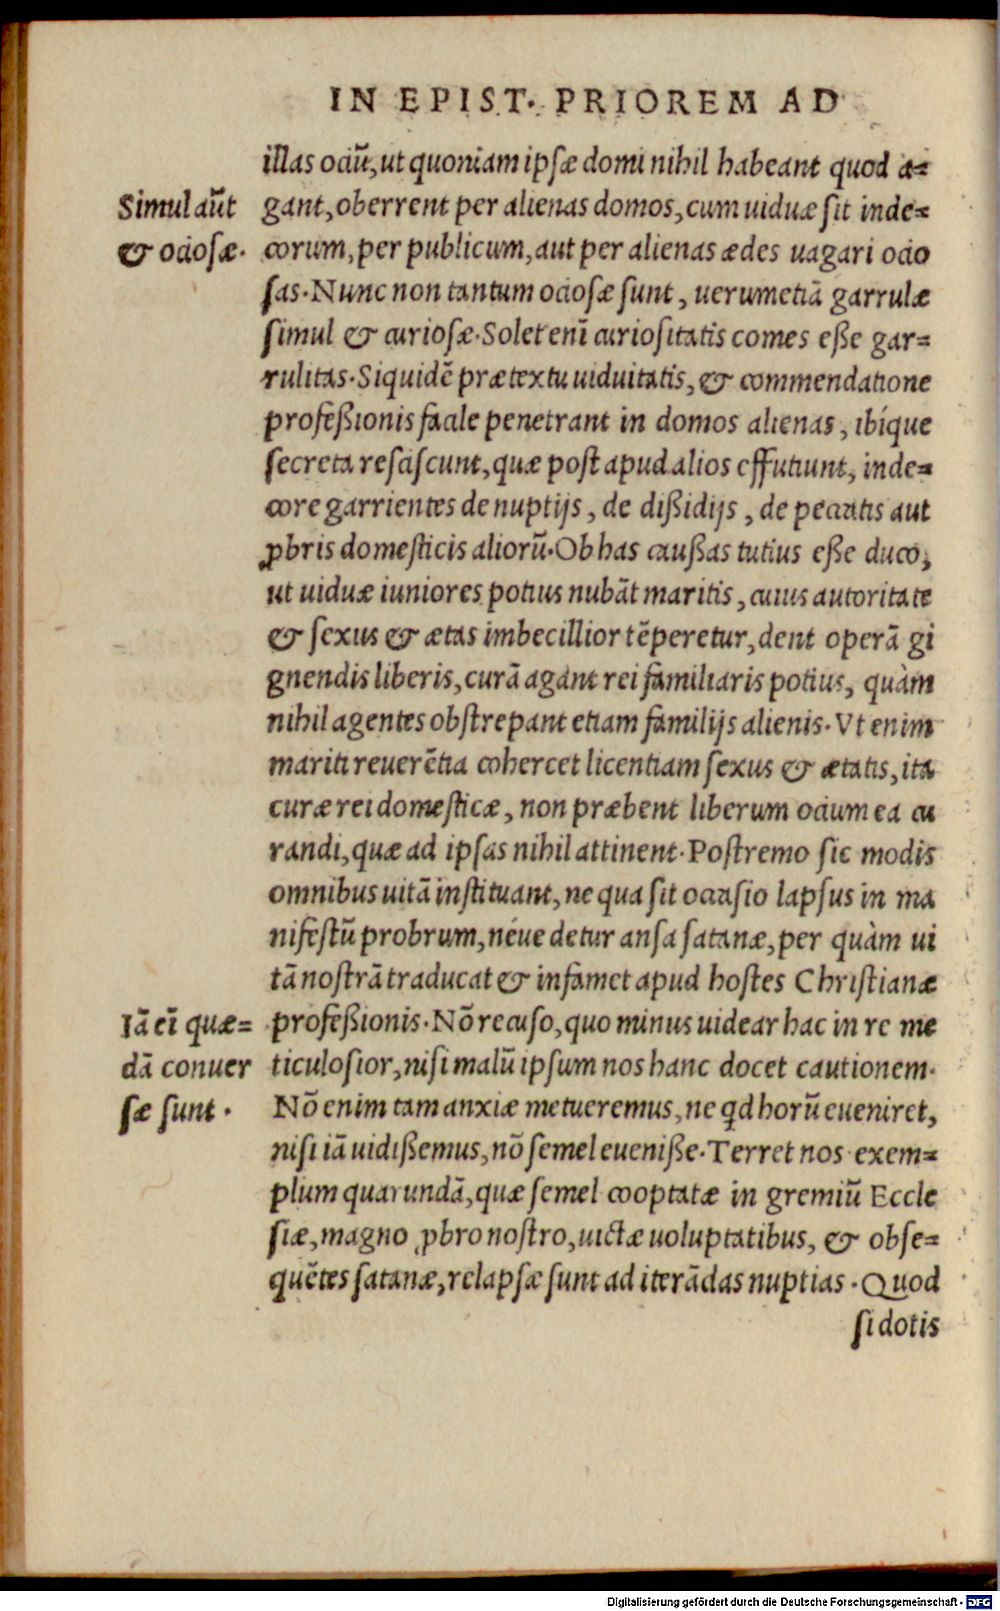 IN EPIST. PRIOREM AD
illas ociũ, ut quoniam ipsæ domi nihil habeant quod a=
Simul aũt
gant, oberrent per alienas domos, cum uiduæ sit inde=
& ociosæ.
corum, per publicum, aut per alienas ædes uagari ocio
sas. Nunc non tantum ociosæ sunt, uerumetiã garrulæ
simul & curiosæ. Solet enĩ curiositatis comes eſſe gar=
rulitas. Siquidẽ prætextu uiduitatis, & commendatione
profeſſionis facile penetrant in domos alienas, ibíque
secreta resciscunt, quæ post apud alios effutiunt, inde=
core garrientes de nuptijs, de diſſidijs, de peccatis aut
ꝓbris domesticis aliorũ. Ob has cauſſas tutius eſſe duco,
ut uiduæ iuniores potius nubãt maritis, cuius autoritate
& sexus & ætas imbecillior tẽperetur, dent operã gi
gnendis liberis, curã agant rei familiaris potius, quàm
nihil agentes obstrepant etiam familijs alienis. Vt enim
mariti reuerẽtia cohercet licentiam sexus & ætatis, ita
curæ rei domesticæ, non præbent liberum ocium ea cu
randi, quæ ad ipsas nihil attinent. Postremo sic modis
omnibus uitã instituant, ne qua sit occasio lapsus in ma
nifestũ probrum, néue detur ansa satanæ, per quàm ui
tã nostrã traducat & infamet apud hostes Christianæ
Iã eĩ quæ=
profeſſionis. Nõ recuso, quo minus uidear hac in re me
dã conuer
ticulosior, nisi malũ ipsum nos hanc docet cautionem.
sæ sunt.
Nõ enim tam anxiæ metueremus, ne qd horũ eueniret,
nisi iã uidiſſemus, nõ semel eueniſſe. Terret nos exem=
plum quarundã, quæ semel cooptatæ in gremiũ Eccle
siæ, magno ꝓbro nostro, uictæ uoluptatibus, & obse=
quẽtes satanæ, relapsæ sunt ad iterãdas nuptias. Quod
si dotis
Digitalisierung gefördert durch die Deutsche Forschungsgemeinschaft - DFG